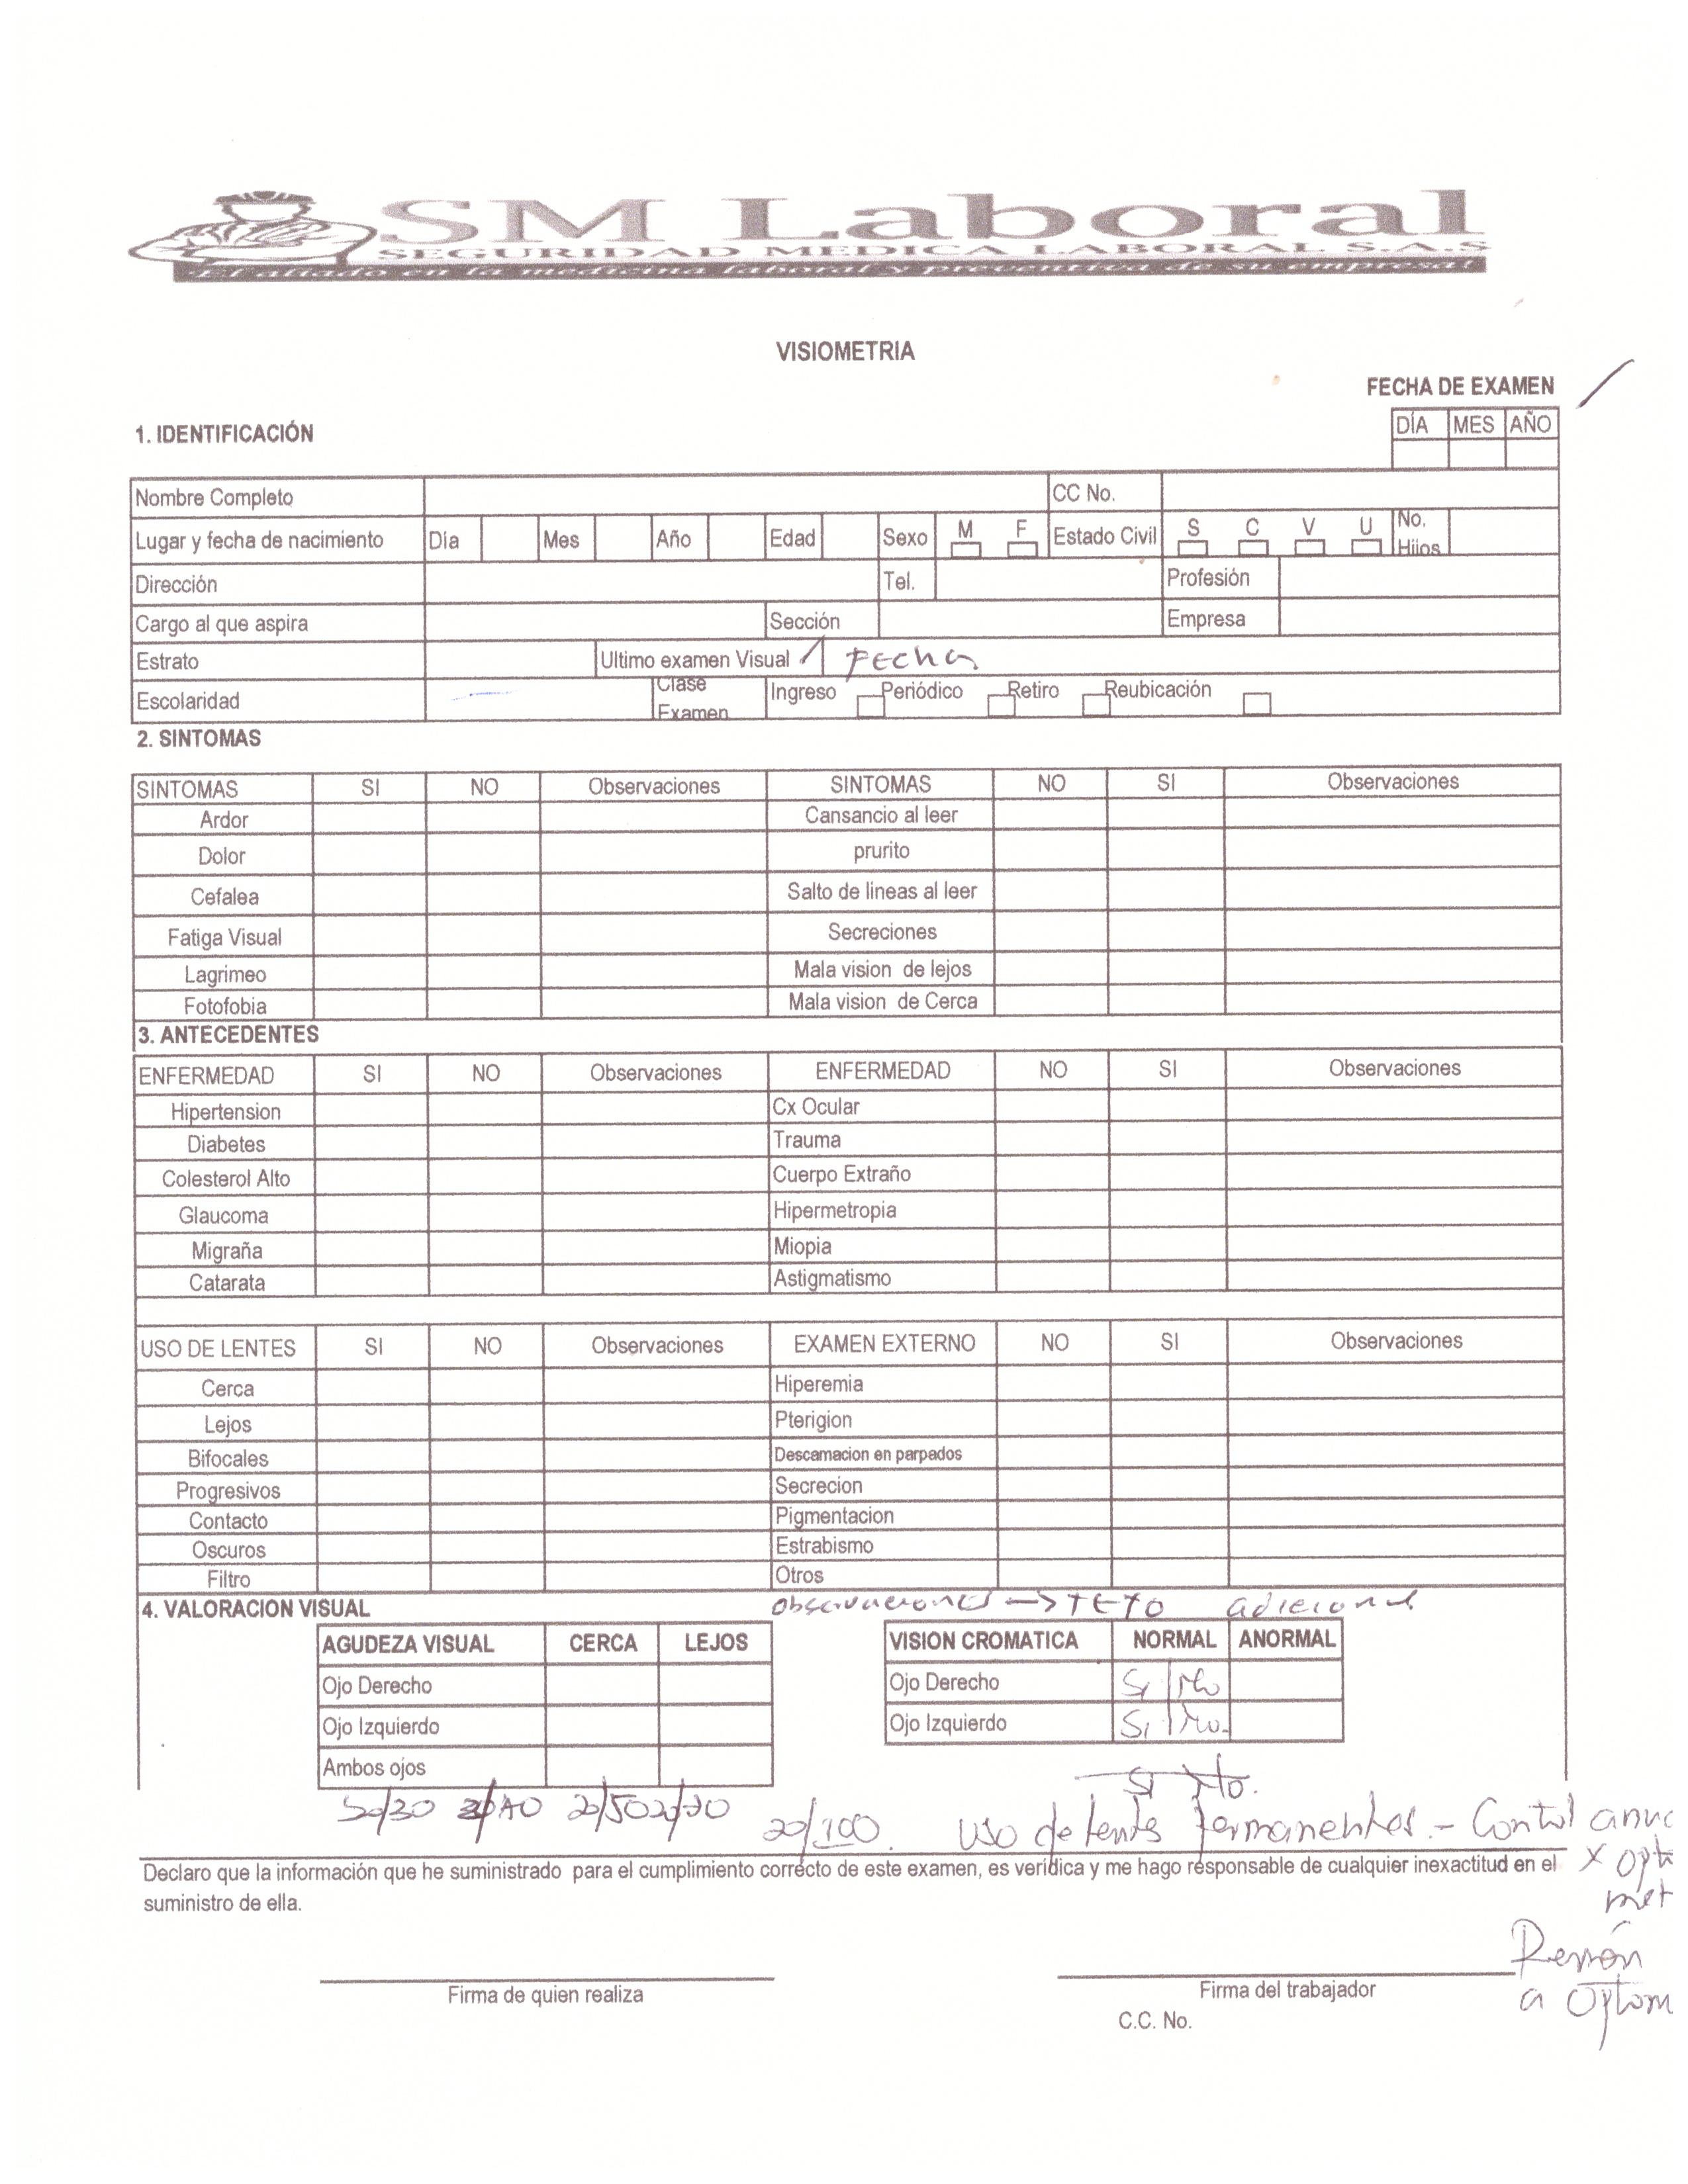 SM Laboral
SEGURIDAD MEDICA LABORAL S.A.S
El aliado en la medicina laboral y preventiva de su empresa!
VISIOMETRIA
FECHA DE EXAMEN
DÍA MES AÑO
1. IDENTIFICACIÓN
Nombre Completo CC No.
Lugar y fecha de nacimiento Día Mes Año Edad Sexo M F Estado Civil S C V U No. Hijos
Dirección Tel. Profesión
Cargo al que aspira Sección Empresa
Estrato Ultimo examen Visual Fecha
Escolaridad Clase Examen Ingreso Periódico Retiro Reubicación
2. SINTOMAS
SINTOMAS SI NO Observaciones SINTOMAS NO SI Observaciones
Ardor Cansancio al leer
Dolor prurito
Cefalea Salto de lineas al leer
Fatiga Visual Secreciones
Lagrimeo Mala vision de lejos
Fotofobia Mala vision de Cerca
3. ANTECEDENTES
ENFERMEDAD SI NO Observaciones ENFERMEDAD NO SI Observaciones
Hipertension Cx Ocular
Diabetes Trauma
Colesterol Alto Cuerpo Extraño
Glaucoma Hipermetropia
Migraña Miopia
Catarata Astigmatismo
USO DE LENTES SI NO Observaciones EXAMEN EXTERNO NO SI Observaciones
Cerca Hiperemia
Lejos Pterigion
Bifocales Descamacion en parpados
Progresivos Secrecion
Contacto Pigmentacion
Oscuros Estrabismo
Filtro Otros
4. VALORACION VISUAL observaciones -> adicional
AGUDEZA VISUAL CERCA LEJOS VISION CROMATICA NORMAL ANORMAL
Ojo Derecho Ojo Derecho Si | No
Ojo Izquierdo Ojo Izquierdo Si | No.
Ambos ojos
Si No.
20/30 20/50 20/100. Uso de lentes permanentes.- Control
Declaro que la información que he suministrado para el cumplimiento correcto de este examen, es verídica y me hago responsable de cualquier inexactitud en el
suministro de ella.
Firma de quien realiza Firma del trabajador
C.C. No.
a Optom